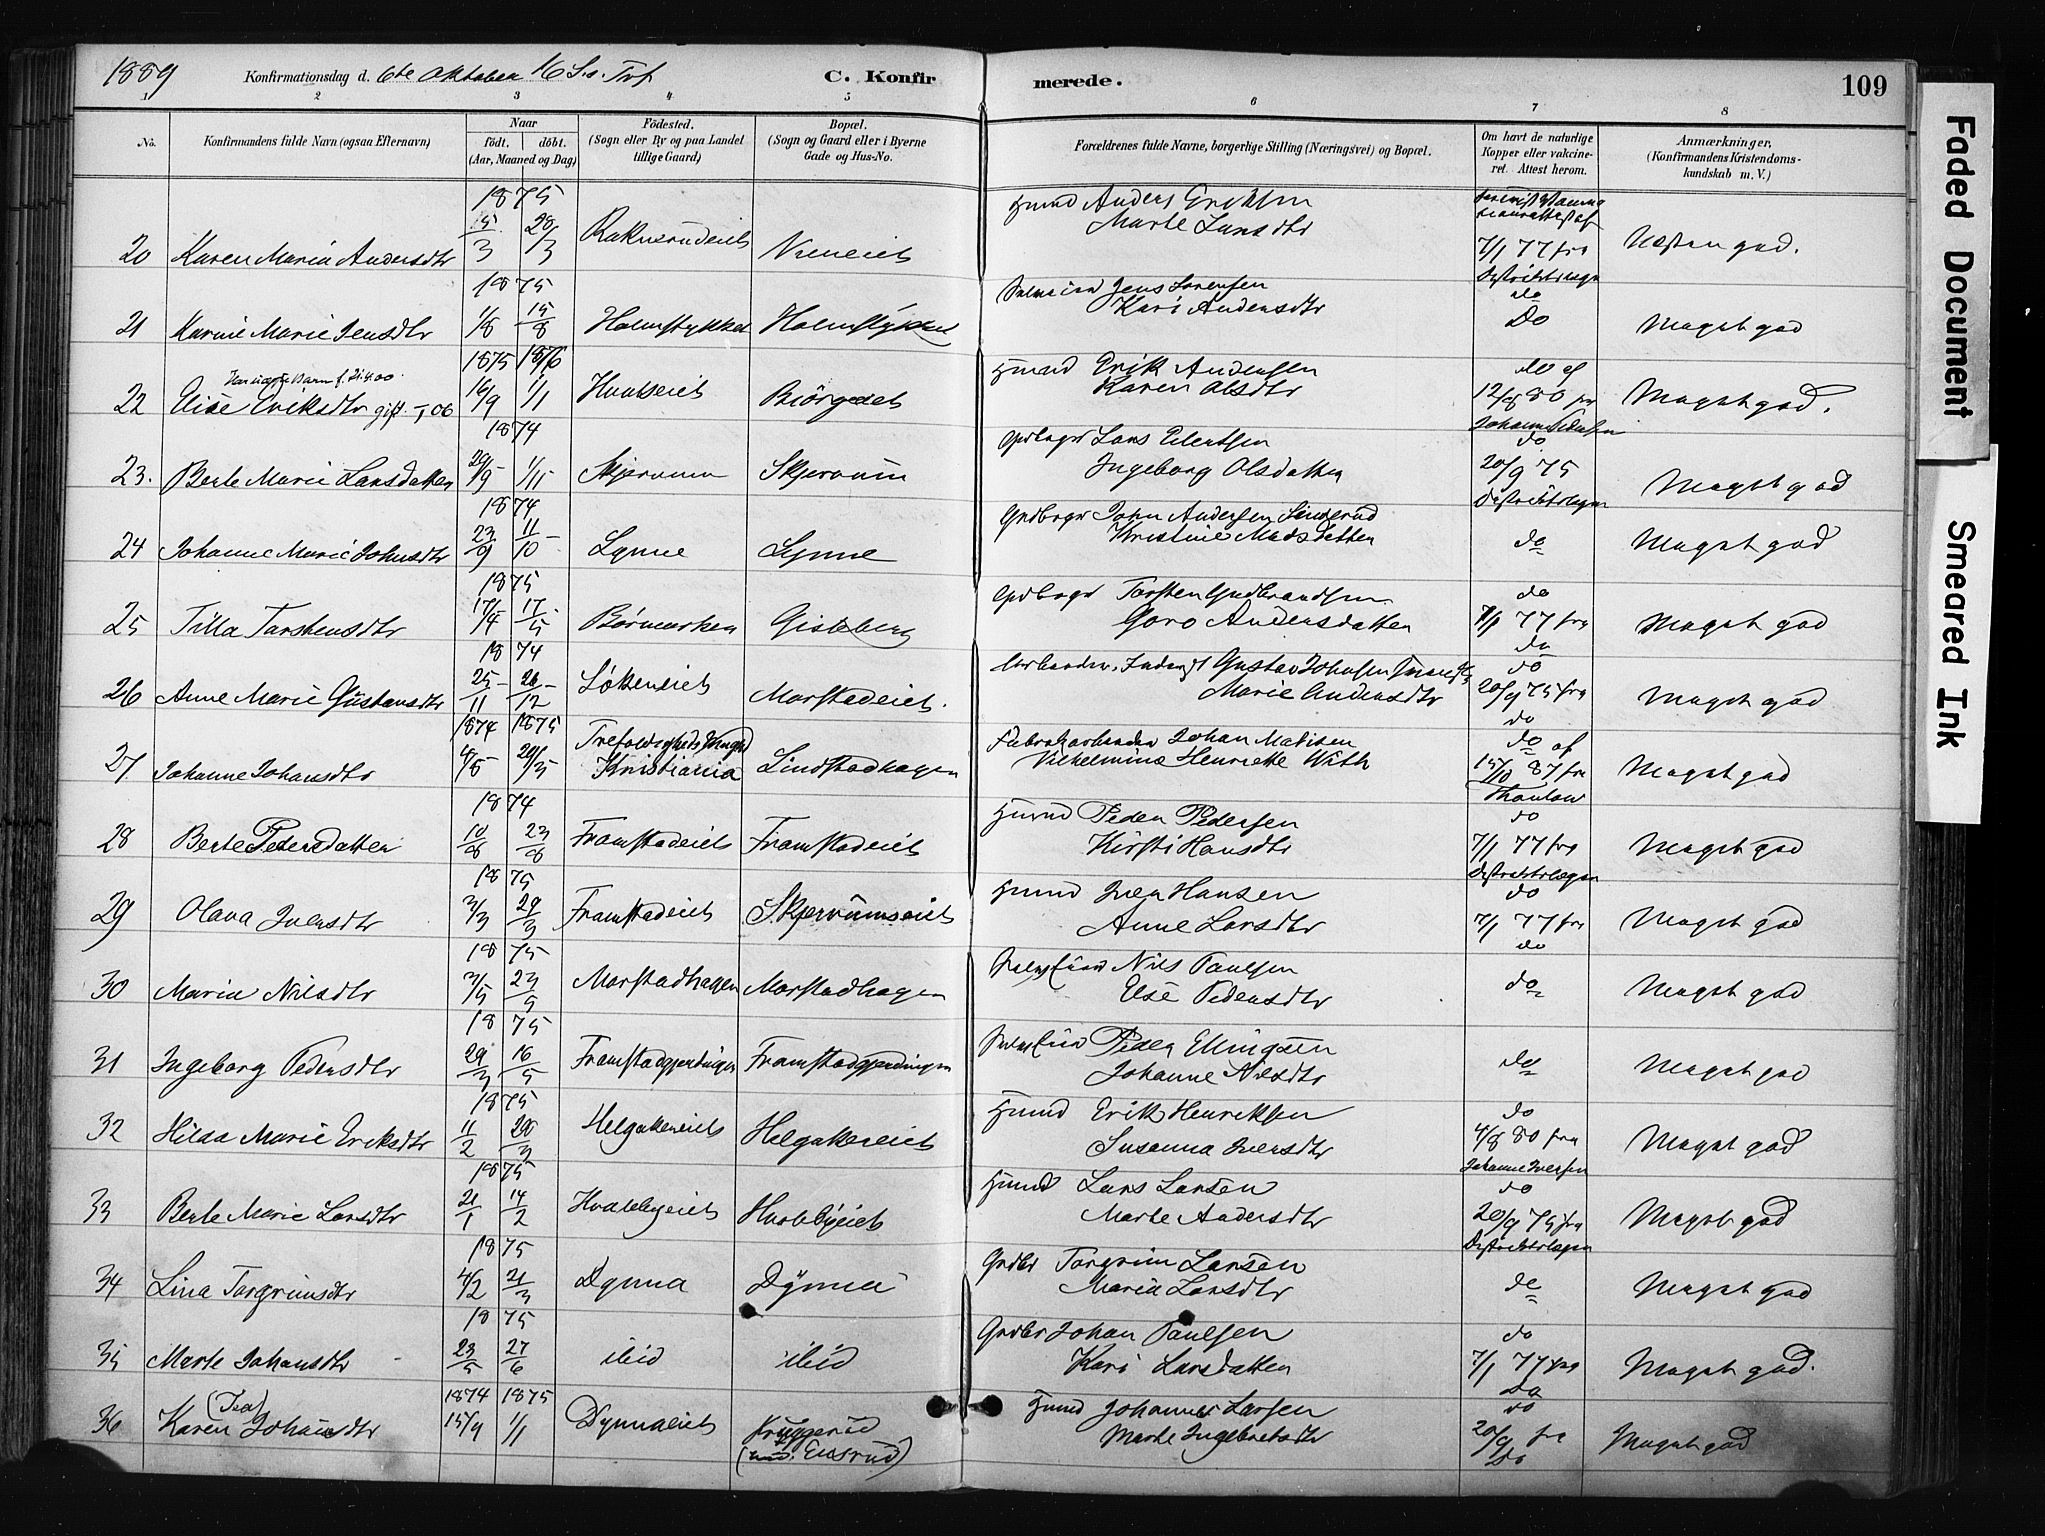 1889 Konfirmationsdag d. 6te Oktober 16 S. e. Tref C. Konfirmerede. 109
1 2 3 4 5 6 7 8
No. Konfirmandens fulde Navn (ogsaa Efternavn) Naar födt. döbt. (Aar, Maaned og Dag) Födested. (Sogn eller By og paa Landet tillige Gaard) Bopæl. (Sogn og Gaard eller i Byerne Gade og Hus-No.) Forældrenes fulde Navne, borgerlige Stilling (Næringsvei) og Bopæl. Om havt de naturlige Kopper eller vakcineret. Attest herom. Anmærkninger, (Konfirmandens Kristendomskundskab m. V.)
1875
20 Karen Maria Andersdtr 28/3 Vieneiet Husmd Anders Eriksen
Marte Larsdtr 7/1 77 fra Distriktslægen Næsten god.
1875
21 Karine Marie Jensdtr 1/8 15/8 Holmstykket Holmstykket Jens Sorensen
Kari Andersdtr do Do Meget god
1875 1876
22 Elise Eriksdtr gift -, 06 16/9 1/1 Hvalseiet Husmd Erik Andersen
Karen Olsdtr do af 12/8 80 fra Meget god.
1874
23. Berte Marie Larsdatter 29/9 1/11 Skjervum Skjervum Grdbrgr Lars Eilertsen
Ingeborg Olsdatter do 20/9 75 Distriktslægen Meget god
1874
24 Johanne Marie Johnsdtr 23/9 11/10 Lynne Lynne Grdbrgr John Andersen
Kristine Madsdatter do Meget god
1875
25 Tilla Torstensdtr 17/4 17/5 Børmarken Gisleberg Grdbrgr Torsten Gudbrandsen
Goro Andersdatter do 7/1 77 fra do Meget god
1874
26 Anne Marie Gustavsdtr 25/11 26/12 Løkeneiet Morstadeiet. Gustav Johnsen
Marie Andersdtr do 20/9 75 fra do Meget god
1874 1875
27 Johanne Johansdtr 4/5 29/3 Trefoldigheds Kristiania Lindstadhagen Johan Matisen
Vilhelmine Henriette With do af 15/10 87 fra Thaulow Meget god
1874
28 Berte Pedersdatter 10/8 23/8 Framstadeiet Framstadeiet Husmd Peder Pedersen
Kirsti Hansdtr do 7/1 77 fra Distriktslægen Meget god
1875
29 Olava Iversdtr 3/3 29/3 Framstadeiet Skjervumseiet Husmd Iver Hansen
Anne Larsdtr do 7/1 77 fra do Meget god
1875
30 Maria Nilsdtr 3/5 23/5 Morstadhagen Morstadhagen Nils Paulsen
Else Pedersdtr do Meget god
1875
31 Ingeborg Pedersdtr 29/3 16/5 Framstadgjerdingen Framstadgjerdingen Peder Ellingsen
Johanne Nilsdtr do Meget god
1875
32 Hilda Marie Eriksdtr 11/2 28/3 Helgakereiet Helgakereiet Husmd Erik Henriksen
Susanna Iversdtr do 4/8 80 fra Johanne Iversen Meget god
1875
33 Berte Marie Larsdtr 21/1 14/2 Hvalebyeiet Hvalebyeiet Husmd Lars Larsen
Marte Andersdtr do 20/9 75 fra Distriktslægen Meget god
1875
34 Lina Torgrimsdtr 4/2 21/3 Dynna Dynna Grdbr Torgrim Larsen
Maria Larsdtr do Meget god
1875
35 Marte Johansdtr 23/5 27/6 ibid ibid Grdbr Johan Paulsen
Kari Larsdatter do 7/1 77 fra do Meget god.
1874 1875
36 Karen (Tea) Johansdtr 15/9 1/1 Dynnaeiet Husmd Johannes Larsen
Marte Ingebretsdtr do 20/9 fra Do Meget god
Faded Document
Smeared Ink